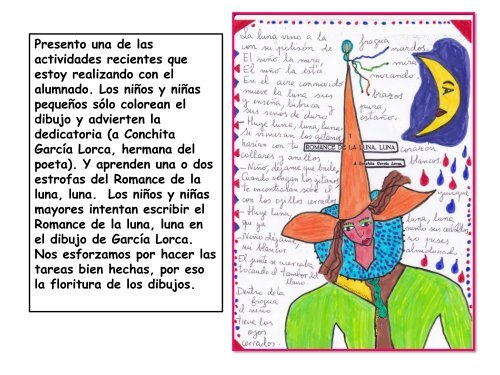 Presento una de las
actividades recientes que
estoy realizando con el
alumnado. Los niños y niñas
pequeños sólo colorean el
dibujo y advierten la
dedicatoria (a Conchita
García Lorca, hermana del
poeta). Y aprenden una o dos
estrofas del Romance de la
luna, luna. Los niños y niñas
mayores intentan escribir el
Romance de la luna, luna en
el dibujo de García Lorca.
Nos esforzamos por hacer las
tareas bien hechas, por eso
la floritura de los dibujos.
La luna vino a la fragua
con su polisón de nardos.
El niño la mira, mira
El niño la está mirando.
En el aire conmovido
mueve la luna sus brazos
y enseña, lúbrica y pura,
sus senos de duro estaño.
– Huye luna, luna, luna
Si vinieran los gitanos
harían con tu corazón
ROMANCE DE LA LUNA, LUNA
A Conchita García Lorca
collares y anillos blancos
– Niño, déjame que baile,
Cuando vengan los gitanos
te encontrarán sobre el yunque
con los ojillos cerrados
– Huye luna, luna, luna,
que ya siento sus caballos
– Niño déjame, no pises
mi blancor almidonado
El jinete se acercaba
tocando el tambor del
llano
Dentro de la
fragua
el niño
tiene los
ojos
cerrados.